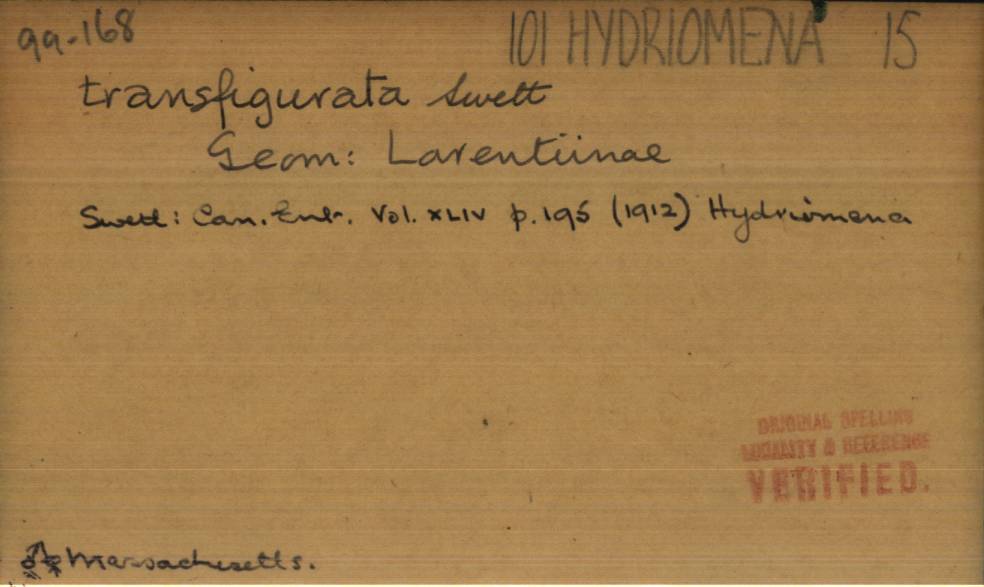 99-168 101 HYDRIOMENA 15
transfigurata Swett
Geom: Larentiinae
Swett: Can. Ent. Vol. XLIV p. 195 (1912) Hydriomena
ORIGINAL SPELLING
LOCALITY & REFERENCE
VERIFIED.
♂♀ Massachusetts.